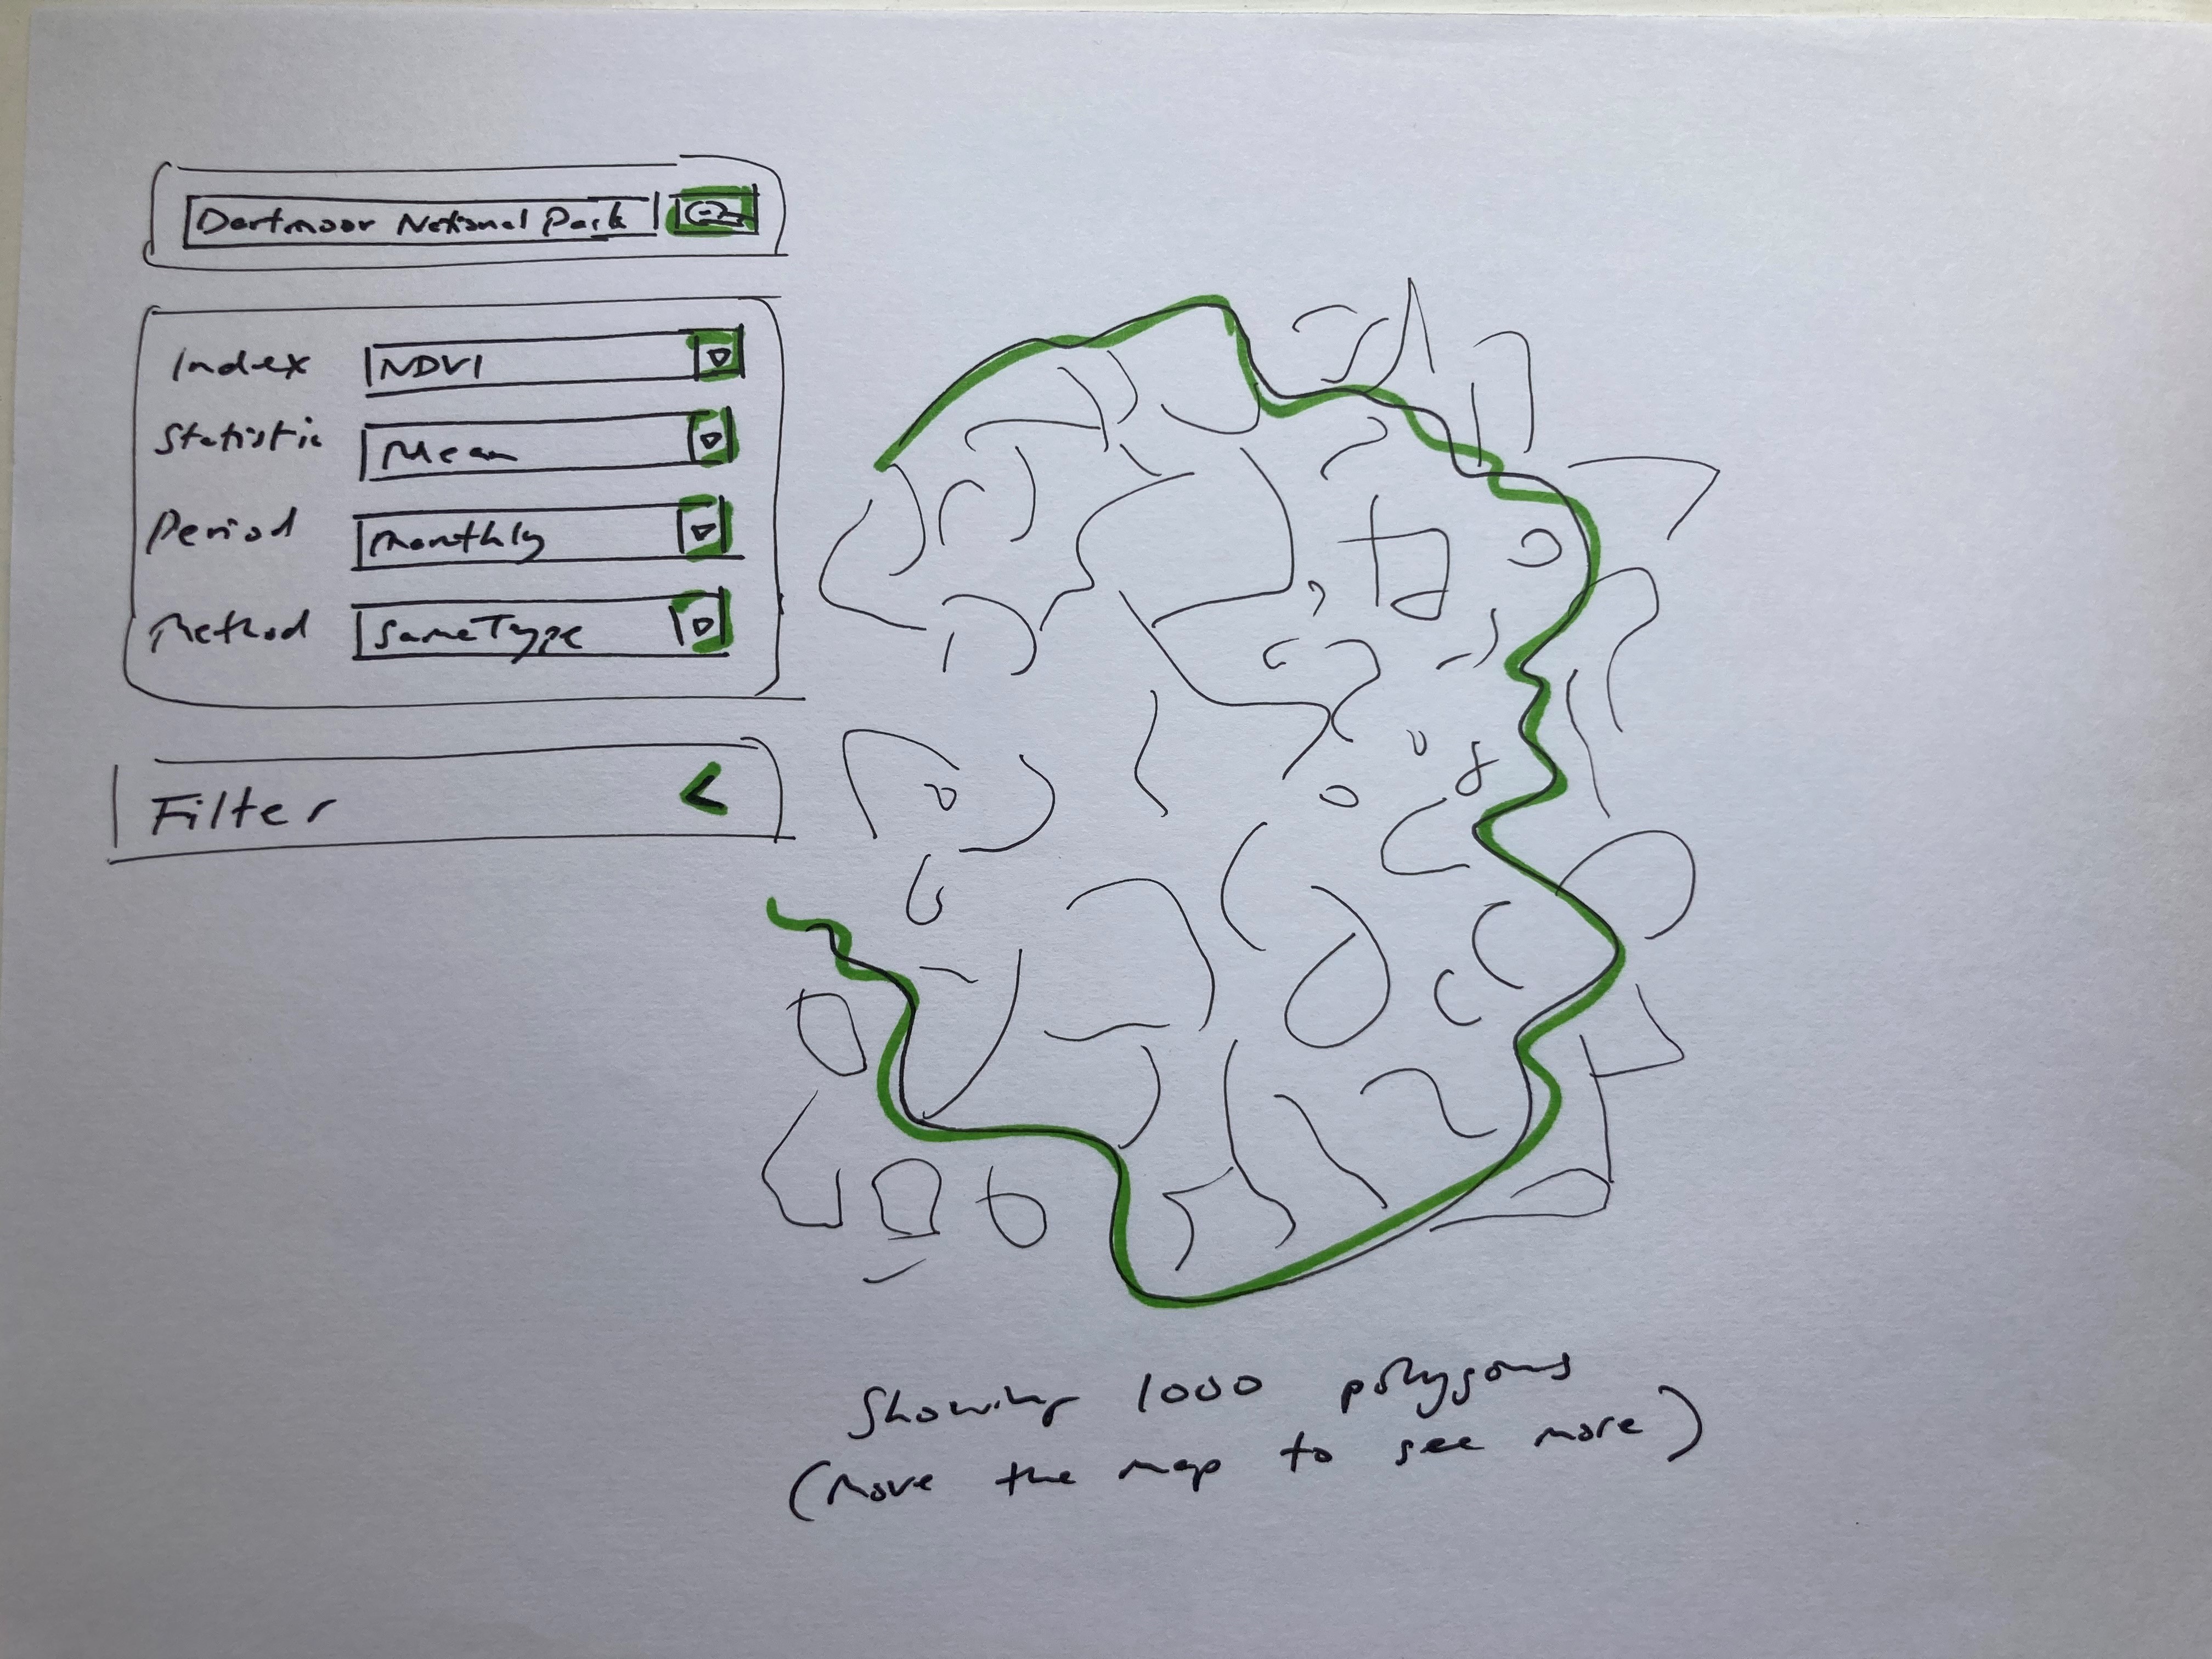 Dartmoor National Park
Index NDVI
Statistic Mean
Period Monthly
Method SameType
Filter
Showing 1000 polygons
(Move the map to see more)